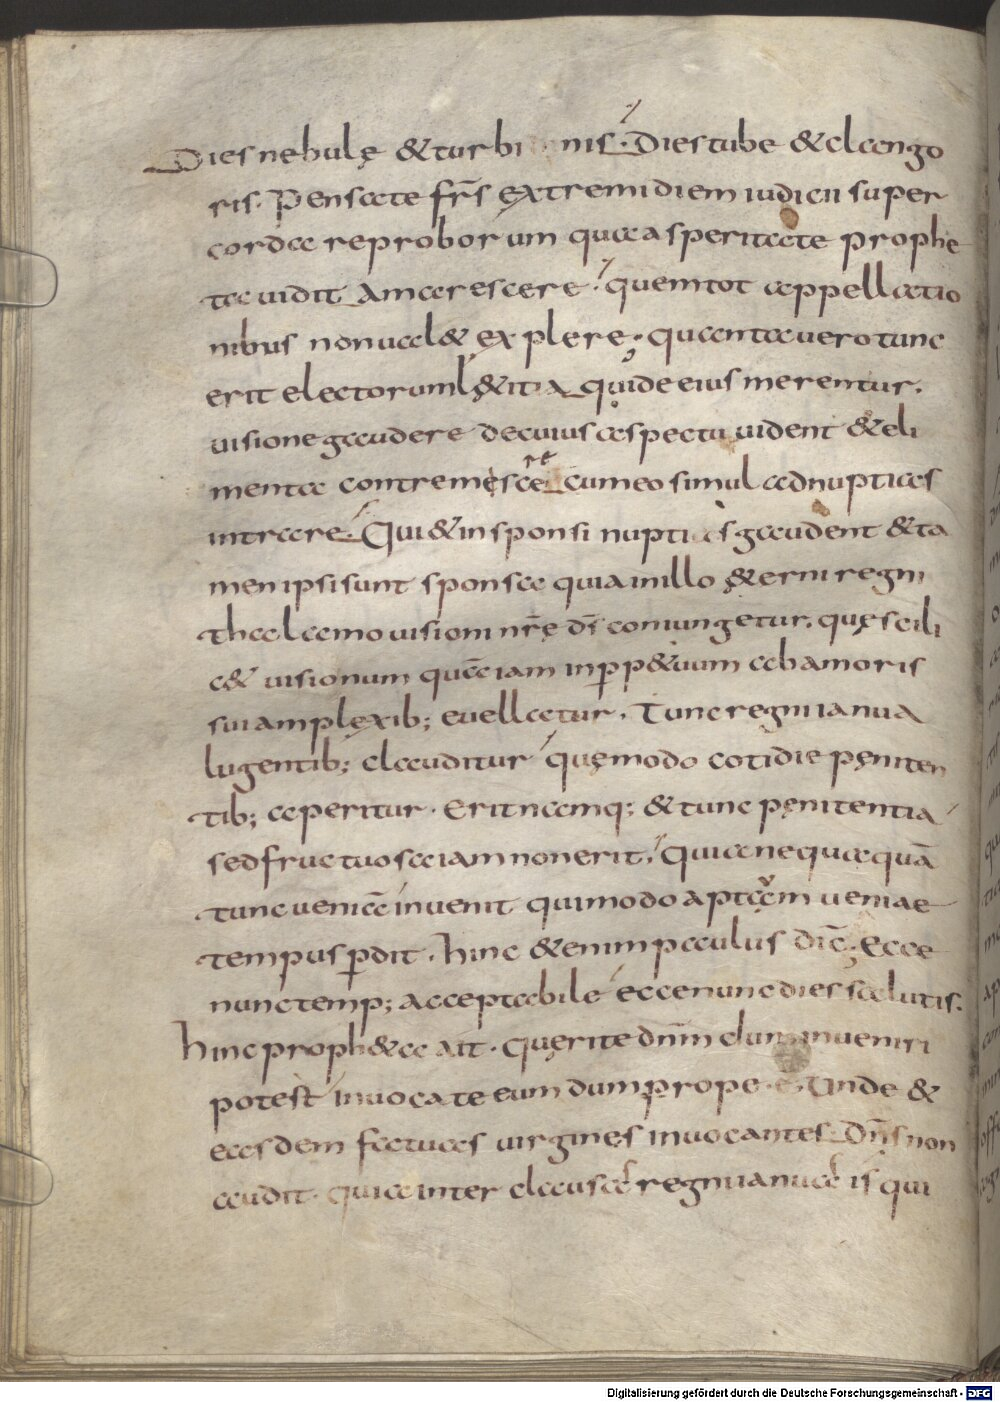 Dies nebulę & turbinis. Dies tube & clango
ris. Pensate fr̄s extremi diem iudicii super
corda reproborum qua asperitate prophe
ta uidit amarescere. quem tot appellatio
nibus non ual& explere. quanta uero tunc
erit electorum l&itia qui de eius merentur.
uisione gaudere de cuius aspectu uident & eli
menta contremescere cum eo simul ad nuptias
intrare. Qui & in sponsi nuptias gaudent & ta
men ipsi sunt sponsa quia in illo &erni regni
thalamo uisioni nr̄ę dī coniungetur. quę scili
c& uisio num quā iam in pp&uum ab amoris
sui amplexib; euellatur. Tunc regni ianua
lugentib; clauditur quę modo cotidie pęniten
tib; aperitur. Erit namq; & tunc pęnitentia
sed fructuosa iam non erit. quia nequaquā
tunc ueniā inuenit qui modo aptam ueniae
tempus pdit. hinc &enim paulus dic̄. Ecce
nunc temp; acceptabile ecce nunc dies salutis.
hinc proph&a ait. Quęrite dn̄m dum inueniri
potest inuocate eum dum prope ē. Unde &
easdem fatuas uirgines inuocantes dn̄s non
audit. quia inter clausa regni ianua is qui
Digitalisierung gefördert durch die Deutsche Forschungsgemeinschaft - DFG